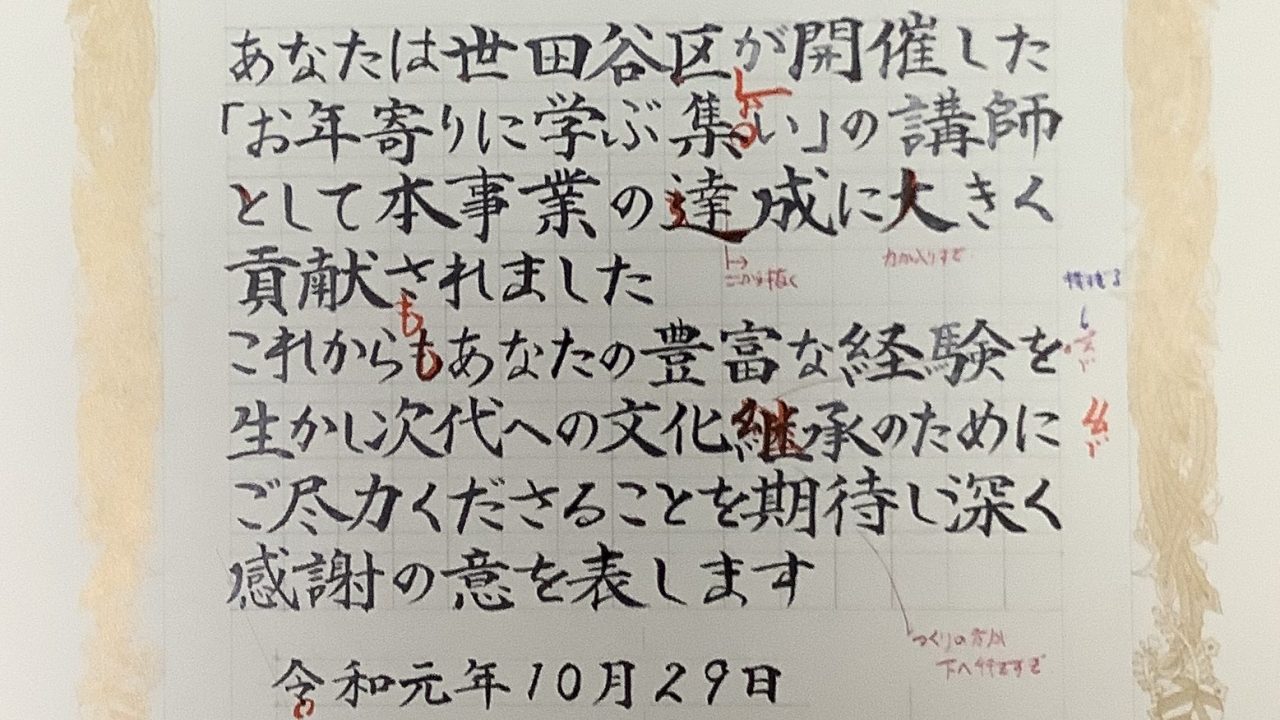 あなたは世田谷区が開催した
「お年寄りに学ぶ集い」の講師
として本事業の達成に大きく
貢献されました
これからもあなたの豊富な経験を
生かし次代への文化継承のために
ご尽力くださることを期待し深く
感謝の意を表します
令和元年10月29日
も
ここから抜く
力が入りすぎ
つくりの方が
下へ行きすぎ